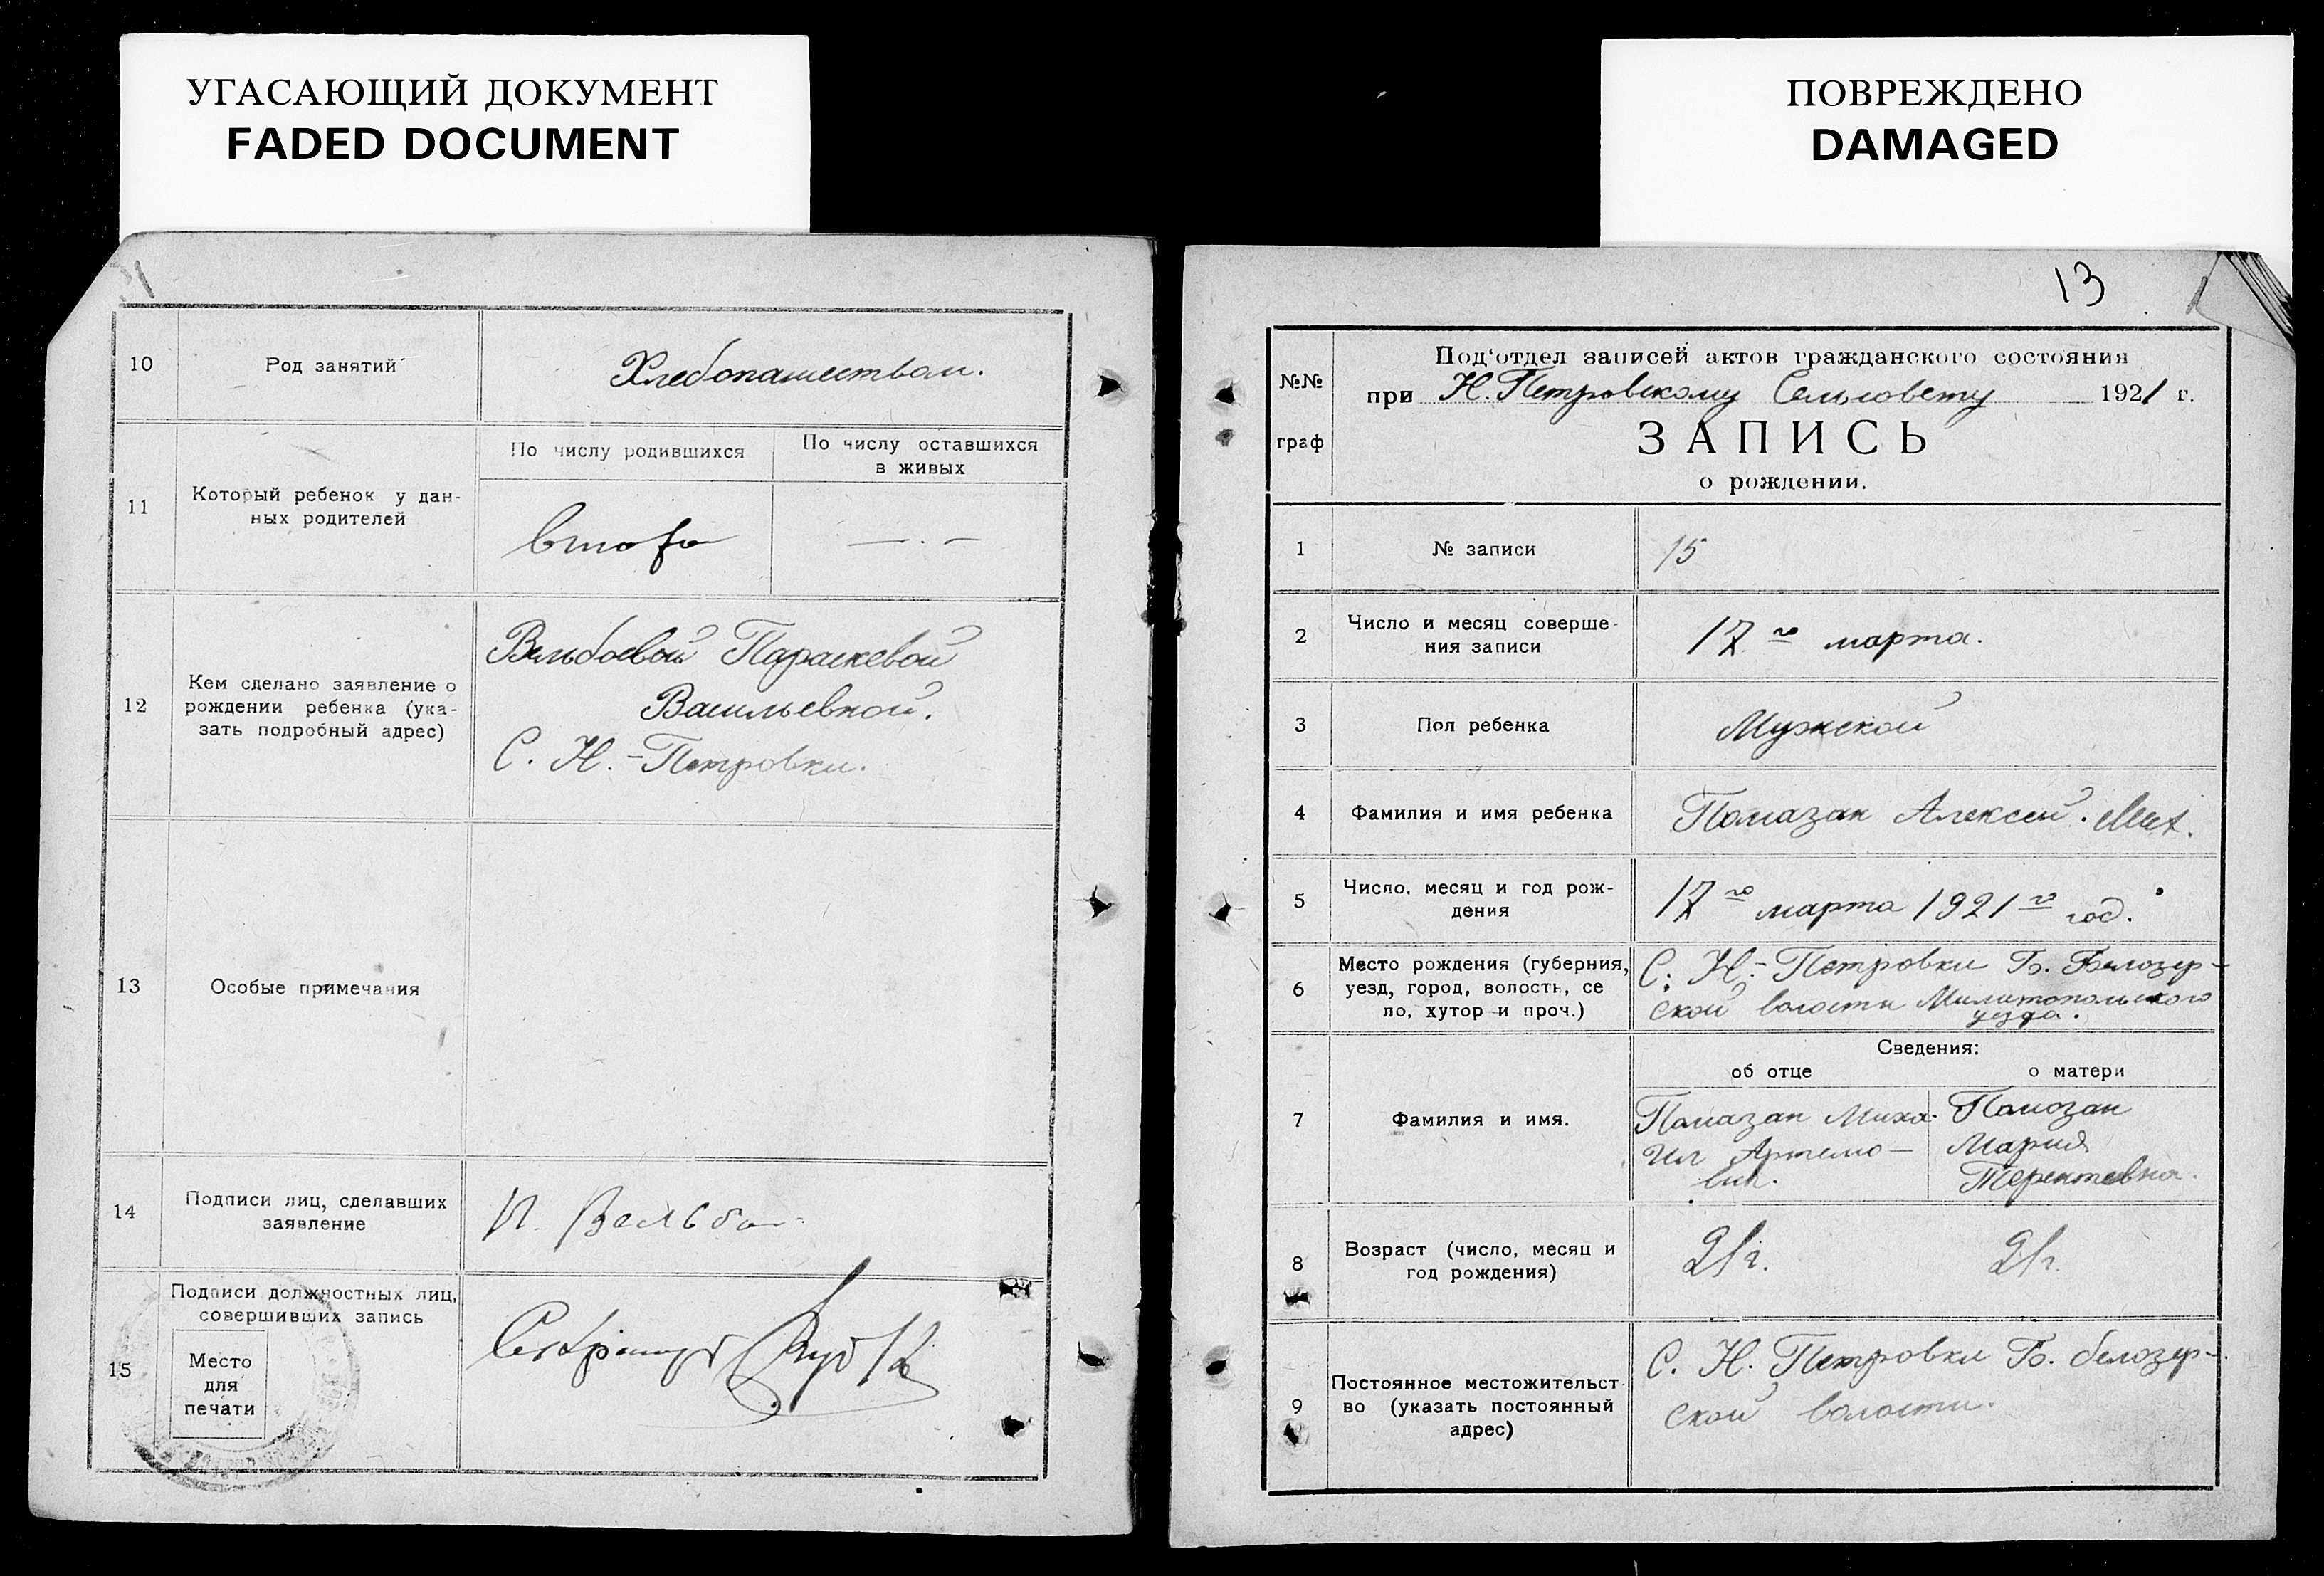 УГАСАЮЩИЙ ДОКУМЕНТ
FADED DOCUMENT
ПОВРЕЖДЕНО
DAMAGED
10
Род занятий
Хлебопашеством.
11
Который ребенок у дан-
ных родителей
По числу родившихся
По числу оставшихся
в живых
— . —
12
Кем сделано заявление о
рождении ребенка (ука-
зать подробный адрес)
Вельбоевой Параскевой
Васильевной.
С. Н.-Петровки.
13
Особые примечания
14
Подписи лиц, сделавших
заявление
П.
15
Подписи должностных лиц,
совершивших запись
Место
для
печати
13
№№
граф
Под‘отдел записей актов гражданского состояния
при Н. Петровскому Сельсовету 1921 г.
ЗАПИСЬ
о рождении.
1
№ записи
15
2
Число и месяц соверше-
ния записи
17го марта.
3
Пол ребенка
Мужской
4
Фамилия и имя ребенка
Помазан Алексей. Мих.
5
Число, месяц и год рож-
дения
17го марта 1921го год.
6
Место рождения (губерния,
уезд, город, волость, се
ло, хутор и проч.)
С. Н.-Петровки Б. Белозер-
ской волости Мелитопольского
уезда.
Сведения:
об отце
о матери
7
Фамилия и имя.
Помазан Миха-
ил Артемо-
вич.
Помозан
Мария
Терентевна.
8
Возраст (число, месяц и
год рождения)
21г.
21г.
9
Постоянное местожительст-
во (указать постоянный
адрес)
С. Н. Петровки Б. белозер-
ской волости.